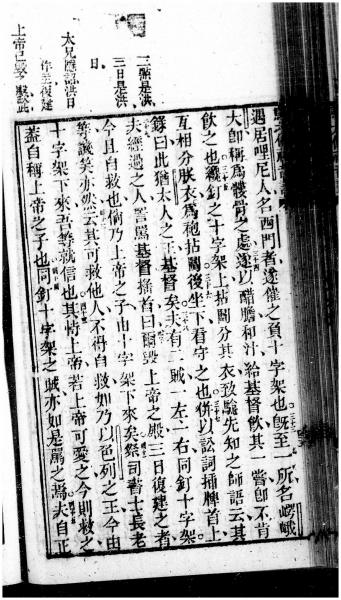 三點是洪
三日是洪
日。
太兄應認洪日
作主復建
上帝已毀
遇居哩尼人名西門者遂催之負十字架也既至一所名嶧峨
大卽稱爲髏骨之處遂以醋膽和汁給基督飲其一嘗卽不肯
飲之也纔釘之十字架上拈鬮分其衣致驗先知之師語云其
互相分朕衣爲袍拈鬮後坐下看守之也倂以訟詞插牌首上
錄曰此猶太人之王基督矣夫有二賊一左一右同釘十字架
夫經過之人詈罵基督搖首曰爾毀 上帝之殿三日復建之者
今且自救也倘乃上帝之子由十字架下來矣祭司書士長老
等譏笑亦然云其可救他人不得自救如乃以色列之王今由
十字架下來吾等就信也其恃上帝若上帝可愛之今則救之
蓋自稱上帝之子也同釘十字架之賊亦如是罵之焉夫自正